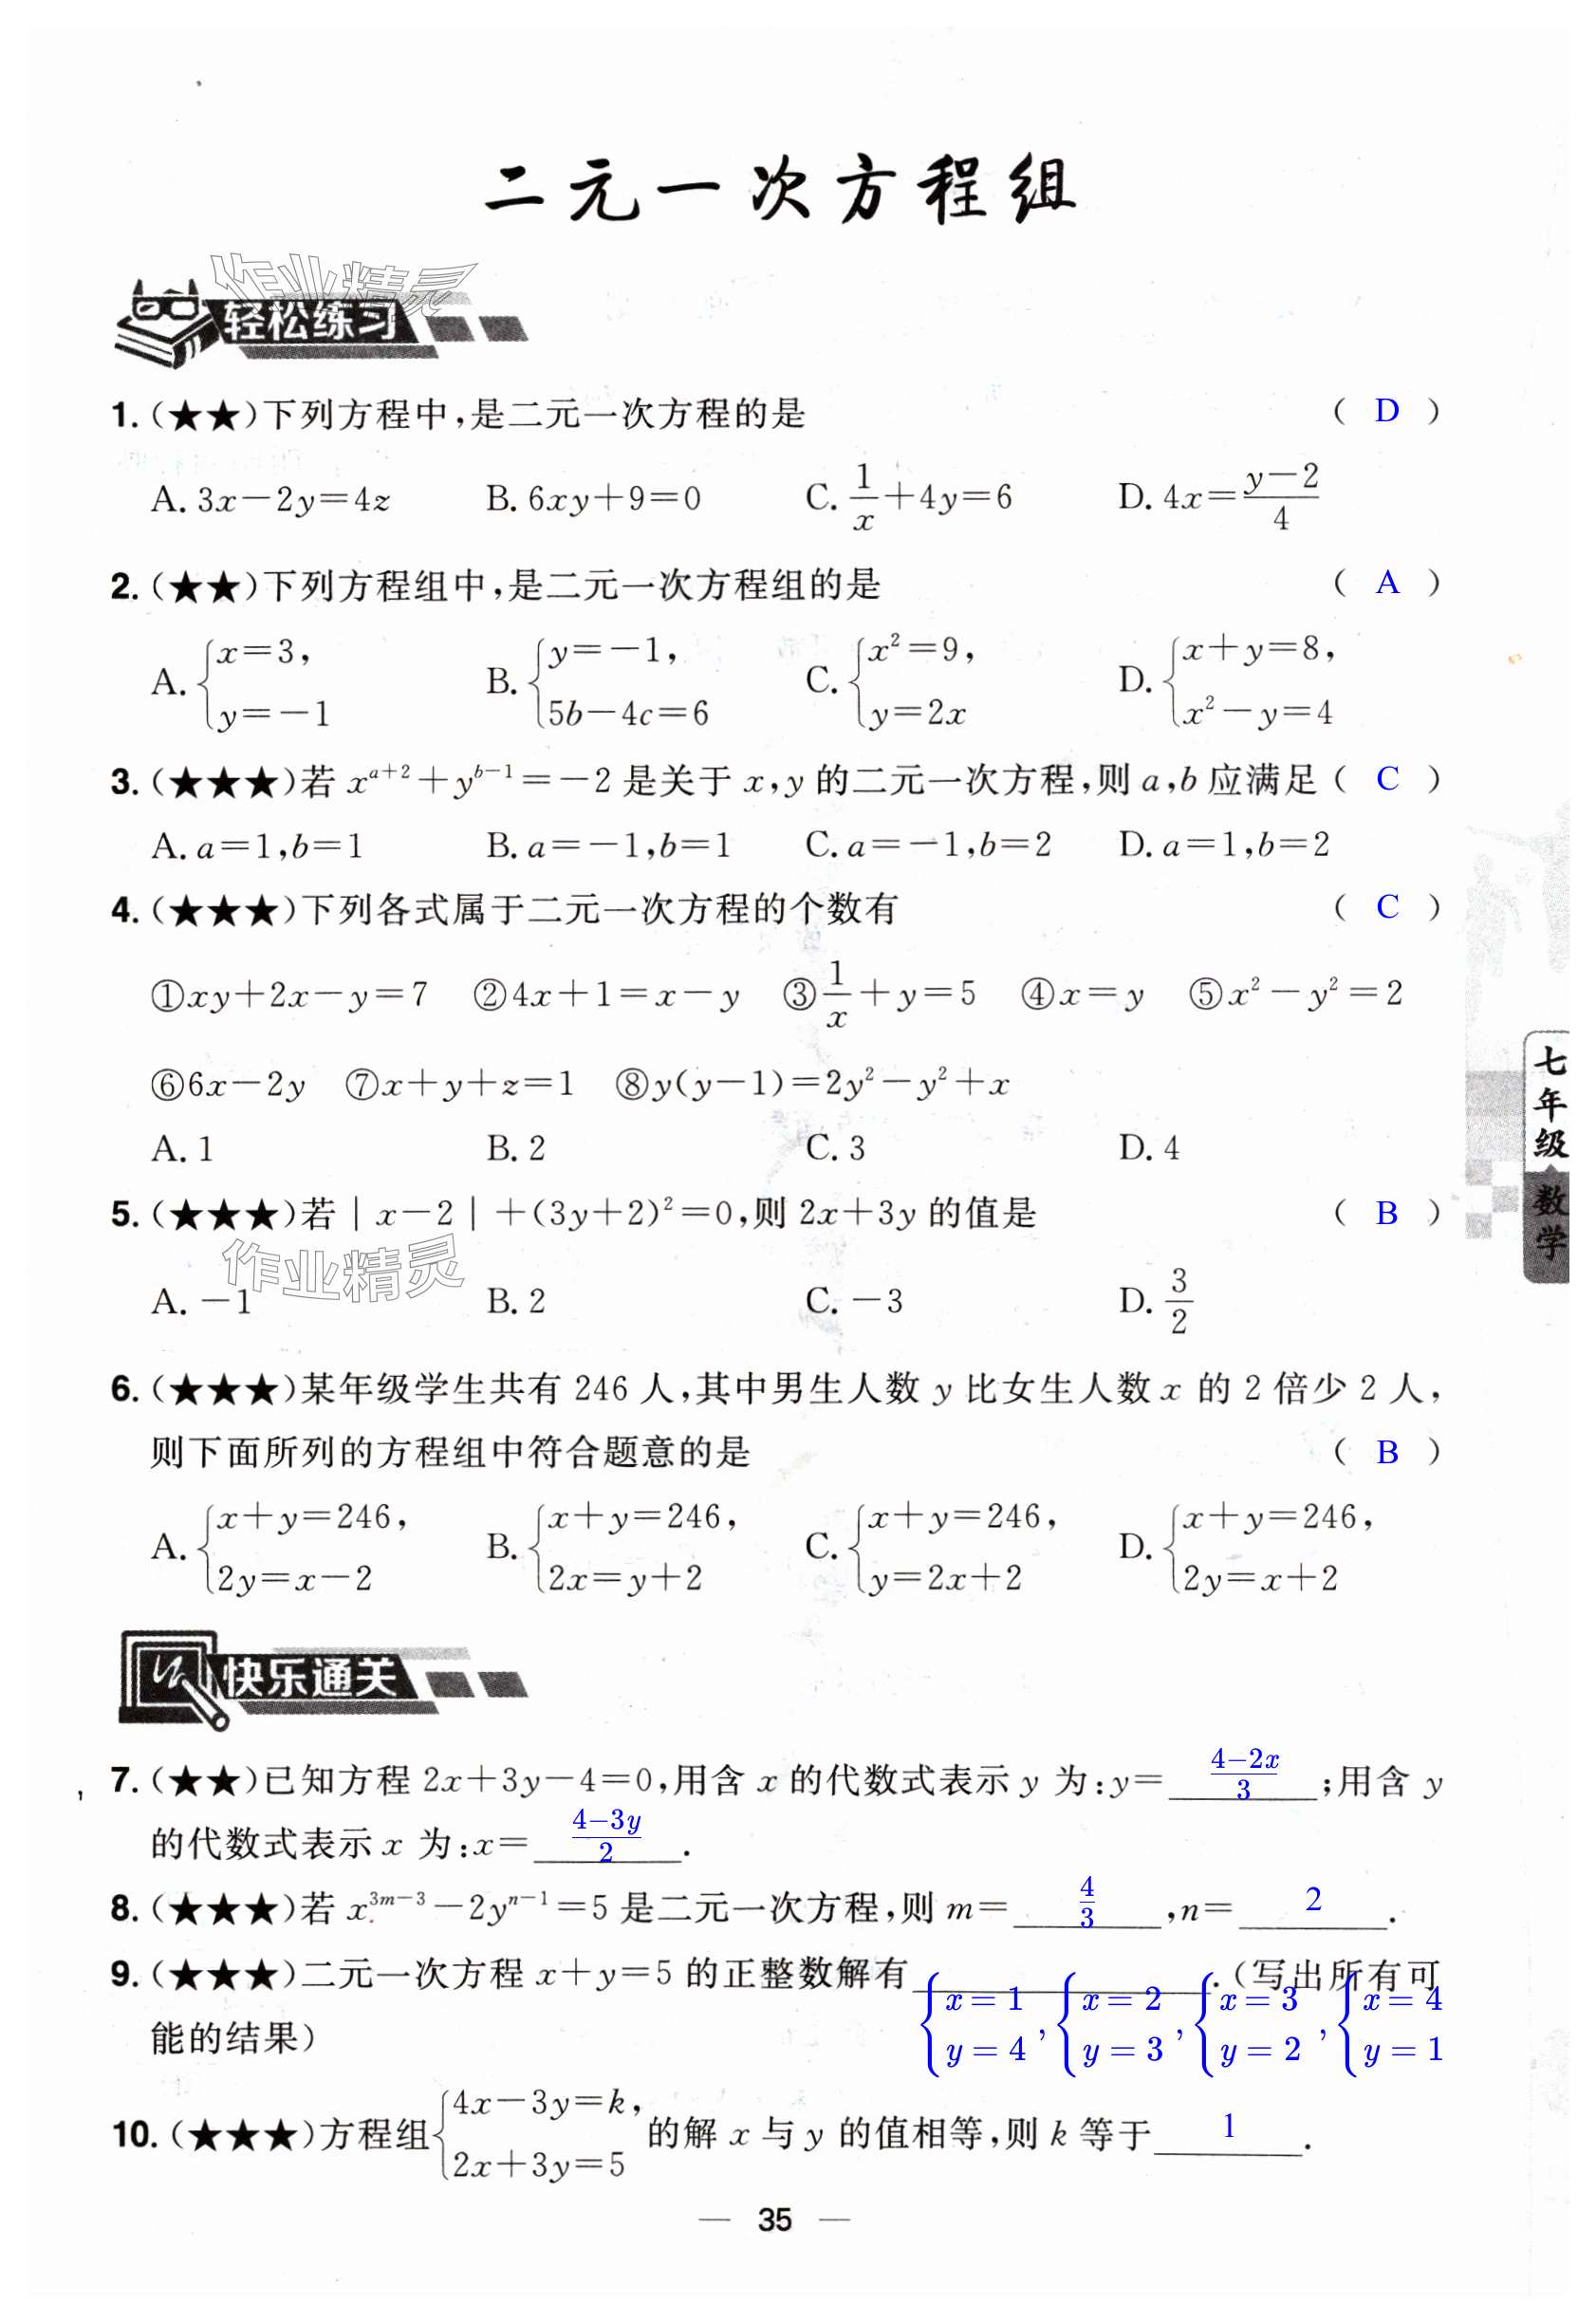 二元一次方程组
作业精灵
轻松练习
1.(★★)下列方程中,是二元一次方程的是 ( D )
A. 3x-2y=4z B. 6xy+9=0 C. 1/x+4y=6 D. 4x=(y-2)/4
2.(★★)下列方程组中,是二元一次方程组的是 ( A )
A. {x=3, y=-1 B. {y=-1, 5b-4c=6 C. {x²=9, y=2x D. {x+y=8, x²-y=4
3.(★★★)若 x^{a+2}+y^{b-1}=-2 是关于 x,y 的二元一次方程,则 a,b 应满足 ( C )
A. a=1,b=1 B. a=-1,b=1 C. a=-1,b=2 D. a=1,b=2
4.(★★★)下列各式属于二元一次方程的个数有 ( C )
①xy+2x-y=7 ②4x+1=x-y ③1/x+y=5 ④x=y ⑤x²-y²=2
⑥6x-2y ⑦x+y+z=1 ⑧y(y-1)=2y²-y²+x
A. 1 B. 2 C. 3 D. 4
5.(★★★)若|x-2|+(3y+2)²=0,则 2x+3y 的值是 ( B )
作业精灵
A. -1 B. 2 C. -3 D. 3/2
6.(★★★)某年级学生共有 246 人,其中男生人数 y 比女生人数 x 的 2 倍少 2 人,
则下面所列的方程组中符合题意的是 ( B )
A. {x+y=246, 2y=x-2 B. {x+y=246, 2x=y+2 C. {x+y=246, y=2x+2 D. {x+y=246, 2y=x+2
快乐通关
7.(★★)已知方程 2x+3y-4=0,用含 x 的代数式表示 y 为:y= (4-2x)/3 ;用含 y
的代数式表示 x 为:x= (4-3y)/2 .
8.(★★★)若 x^{3m-3}-2y^{n-1}=5 是二元一次方程,则 m= 4/3 ,n= 2 .
9.(★★★)二元一次方程 x+y=5 的正整数解有________.(写出所有可
能的结果) {x=1 y=4, {x=2 y=3, {x=3 y=2, {x=4 y=1
10.(★★★)方程组{4x-3y=k, 2x+3y=5 的解 x 与 y 的值相等,则 k 等于 1 .
— 35 —
七年级
数学